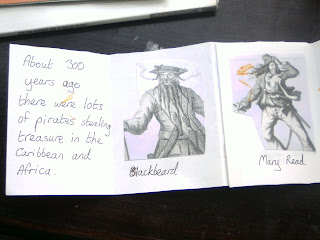 About 300
years ago
there were lots
of pirates stealing
treasure in the
Caribbean and
Africa.
Blackbeard
Mary Read